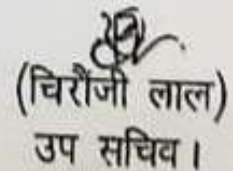 (चिरौंजी लाल)
उप सचिव।